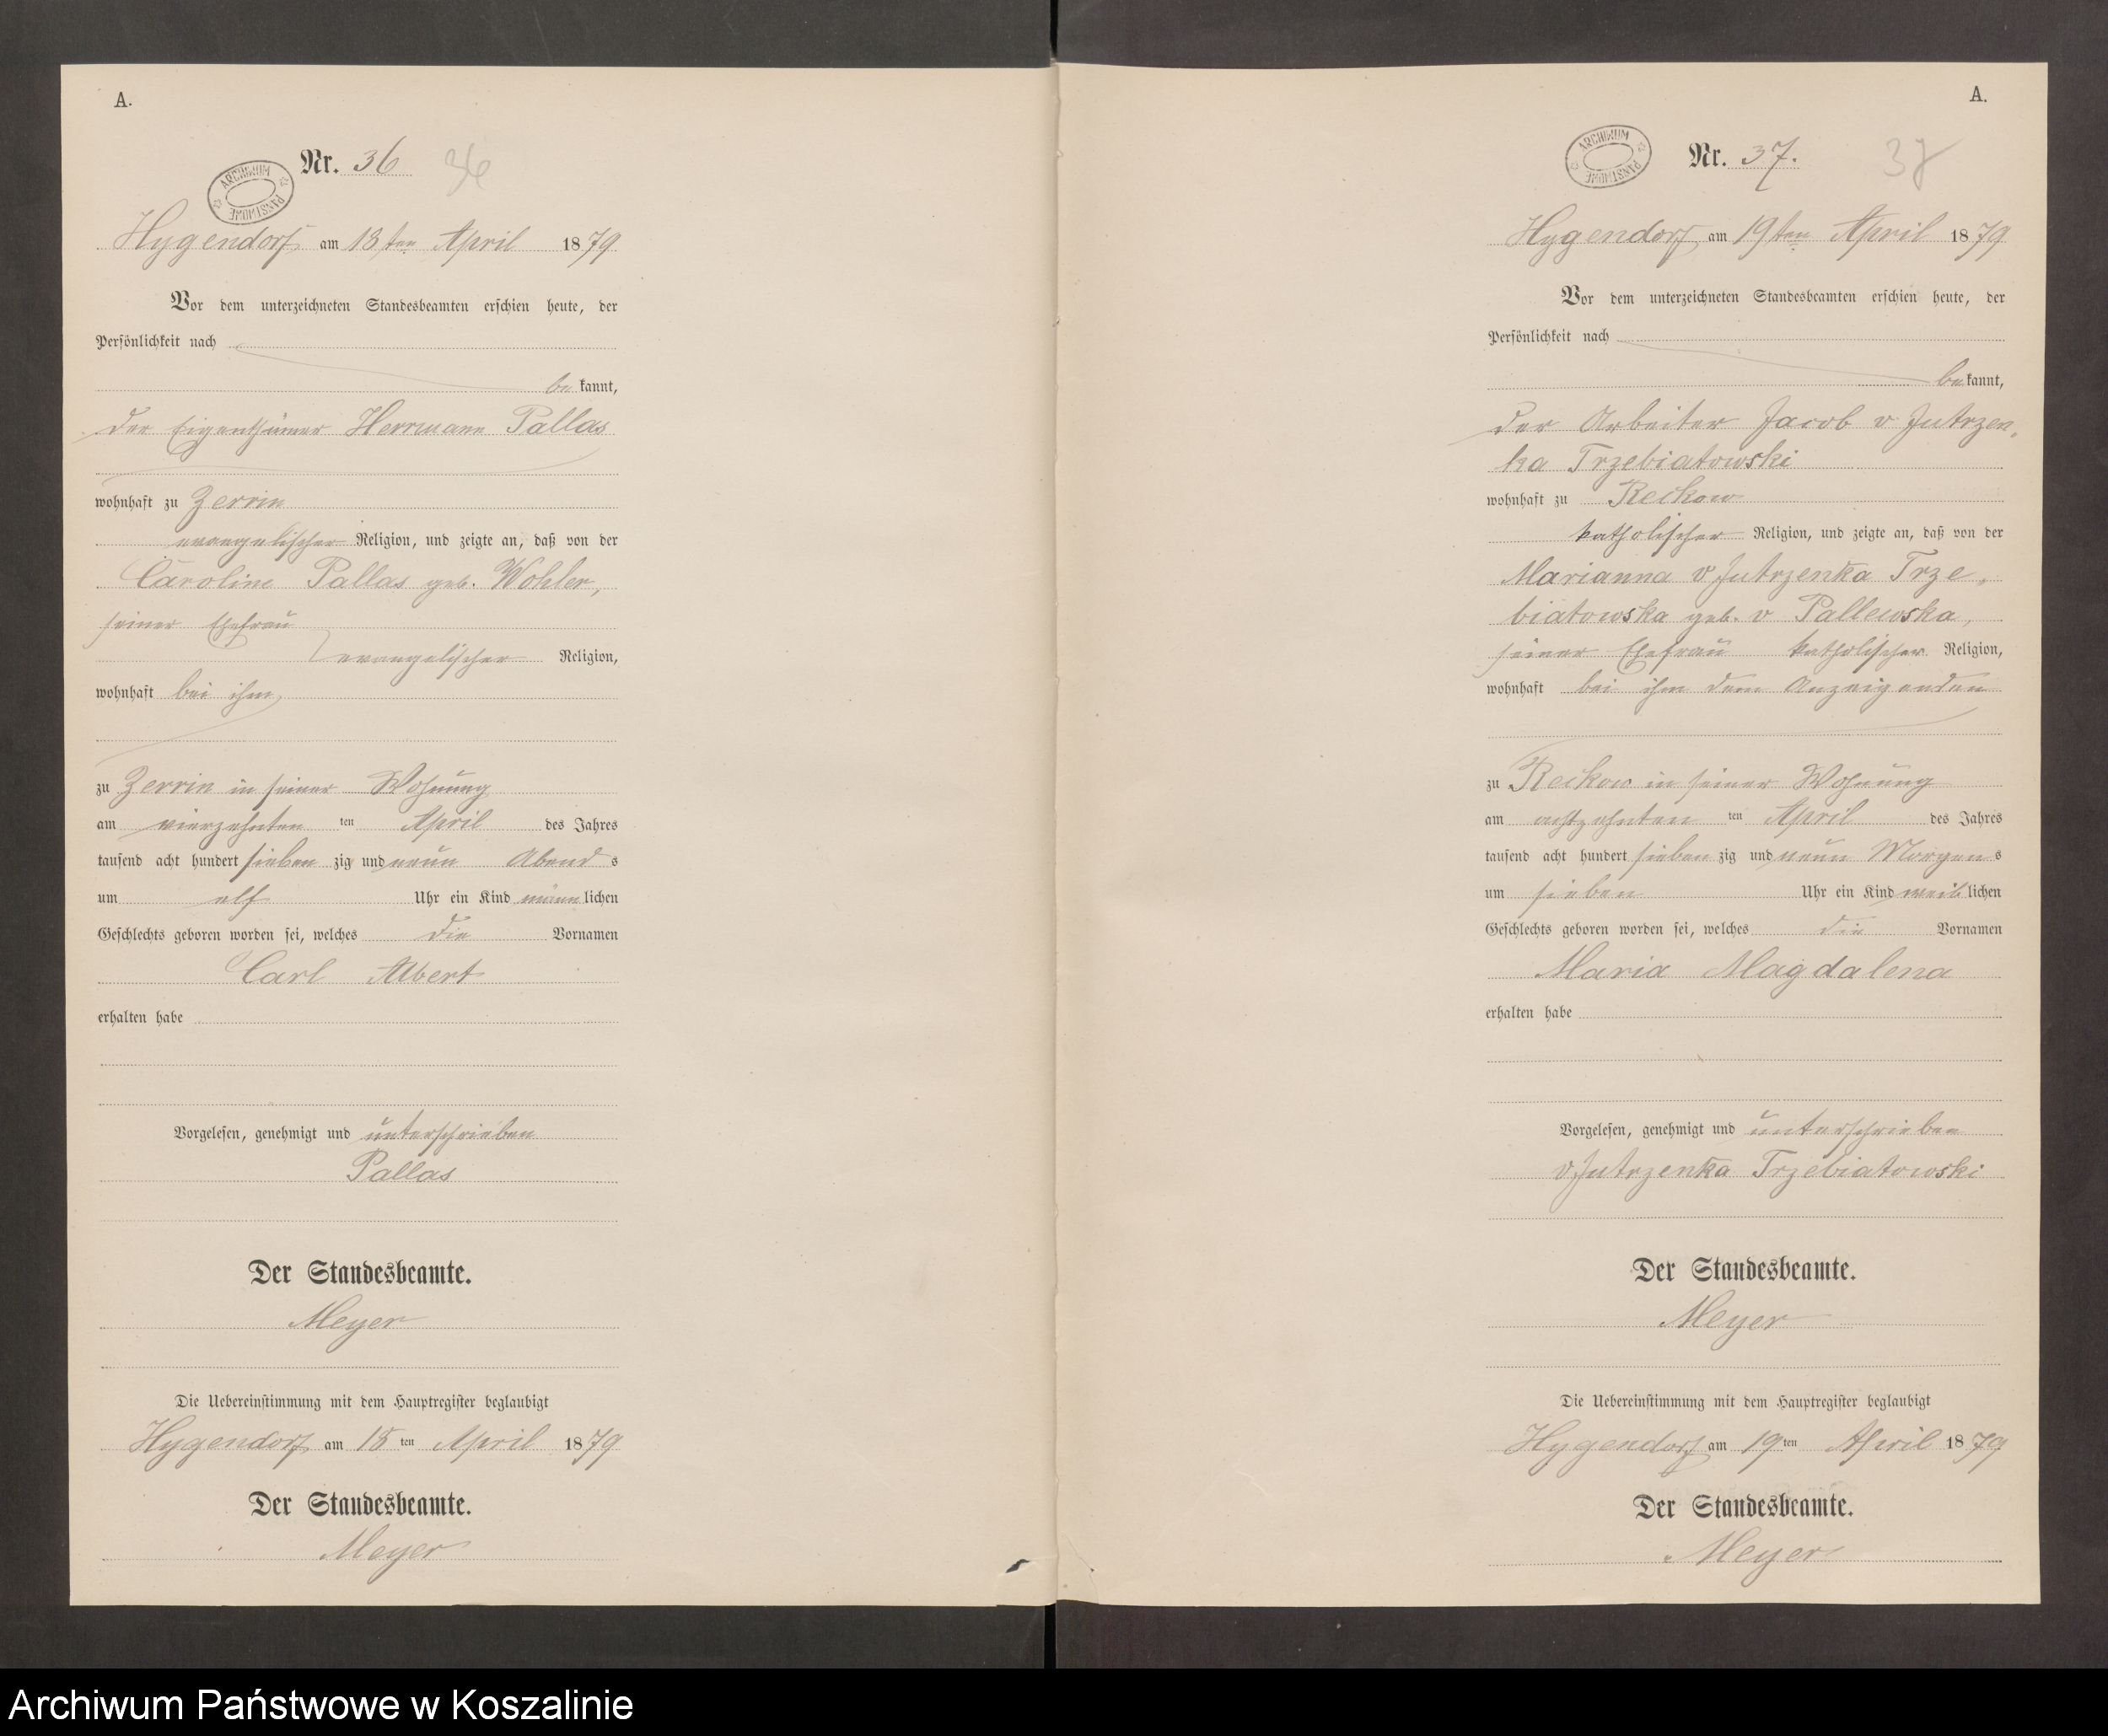 A.
Nr. 36 36
ARCHIWUM PAŃSTWOWE
Hygendorf am 18ten April 1879
Vor dem unterzeichneten Standesbeamten erschien heute, der
Persönlichkeit nach
bekannt,
der Eigenthümer Herrmann Pallas
wohnhaft zu Zerrin
evangelischer Religion, und zeigte an, daß von der
Caroline Pallas geb. Wohler,
seiner Ehefrau
evangelischer Religion,
wohnhaft bei ihm
zu Zerrin in seiner Wohnung
am vierzehnten ten April des Jahres
tausend acht hundert sieben zig und neun Abends
um elf Uhr ein Kind männlichen
Geschlechts geboren worden sei, welches die Vornamen
Carl Albert
erhalten habe
Vorgelesen, genehmigt und unterschrieben
Pallas
Der Standesbeamte.
Meyer
Die Uebereinstimmung mit dem Hauptregister beglaubigt
Hygendorf am 18ten April 1879
Der Standesbeamte.
Meyer
A.
ARCHIWUM PAŃSTWOWE
Nr. 37. 37
Hygendorf am 19ten April 1879
Vor dem unterzeichneten Standesbeamten erschien heute, der
Persönlichkeit nach
bekannt,
der Arbeiter Jacob v Jutrzen-
ka Trzebiatowski
wohnhaft zu Reckow
katholischer Religion, und zeigte an, daß von der
Marianna v Jutrzenka Trze-
biatowska geb. v Pallewska,
seiner Ehefrau katholischer Religion,
wohnhaft bei ihm dem Anzeigenden
zu Reckow in seiner Wohnung
am achtzehnten ten April des Jahres
tausend acht hundert sieben zig und neun Morgens
um sieben Uhr ein Kind weiblichen
Geschlechts geboren worden sei, welches die Vornamen
Maria Magdalena
erhalten habe
Vorgelesen, genehmigt und unterschrieben
v Jutrzenka Trzebiatowski
Der Standesbeamte.
Meyer
Die Uebereinstimmung mit dem Hauptregister beglaubigt
Hygendorf am 19ten April 1879
Der Standesbeamte.
Meyer
Archiwum Państwowe w Koszalinie